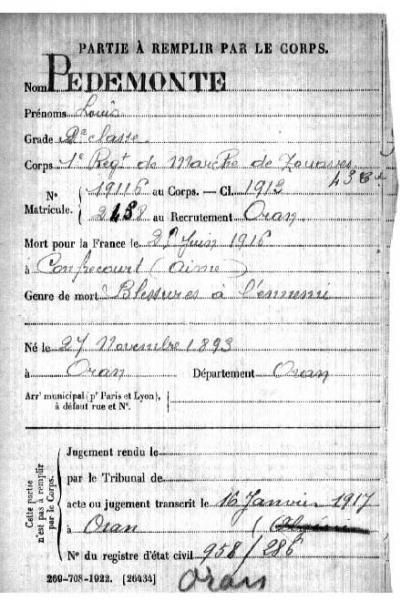 PARTIE À REMPLIR PAR LE CORPS.
Nom PEDEMONTE
Prénoms Louis
Grade 2e classe
Corps 1e Regt de Marche de Zouaves
N° Matricule. 19116 au Corps. — Cl. 1913
au Recrutement Oran
Mort pour la France le Juin 1916
à Confrecourt (Aisne)
Genre de mort Blessures à l'ennemi
Né le 27 Novembre 1893
à Oran Département Oran
Arrt municipal (pr Paris et Lyon), à défaut rue et N°.
Cette partie n'est pas à remplir par le Corps.
Jugement rendu le
par le Tribunal de
acte ou jugement transcrit le 16 Janvier 1917
à Oran
N° du registre d'état civil 958/286
269-708-1922. [26434]
Oran